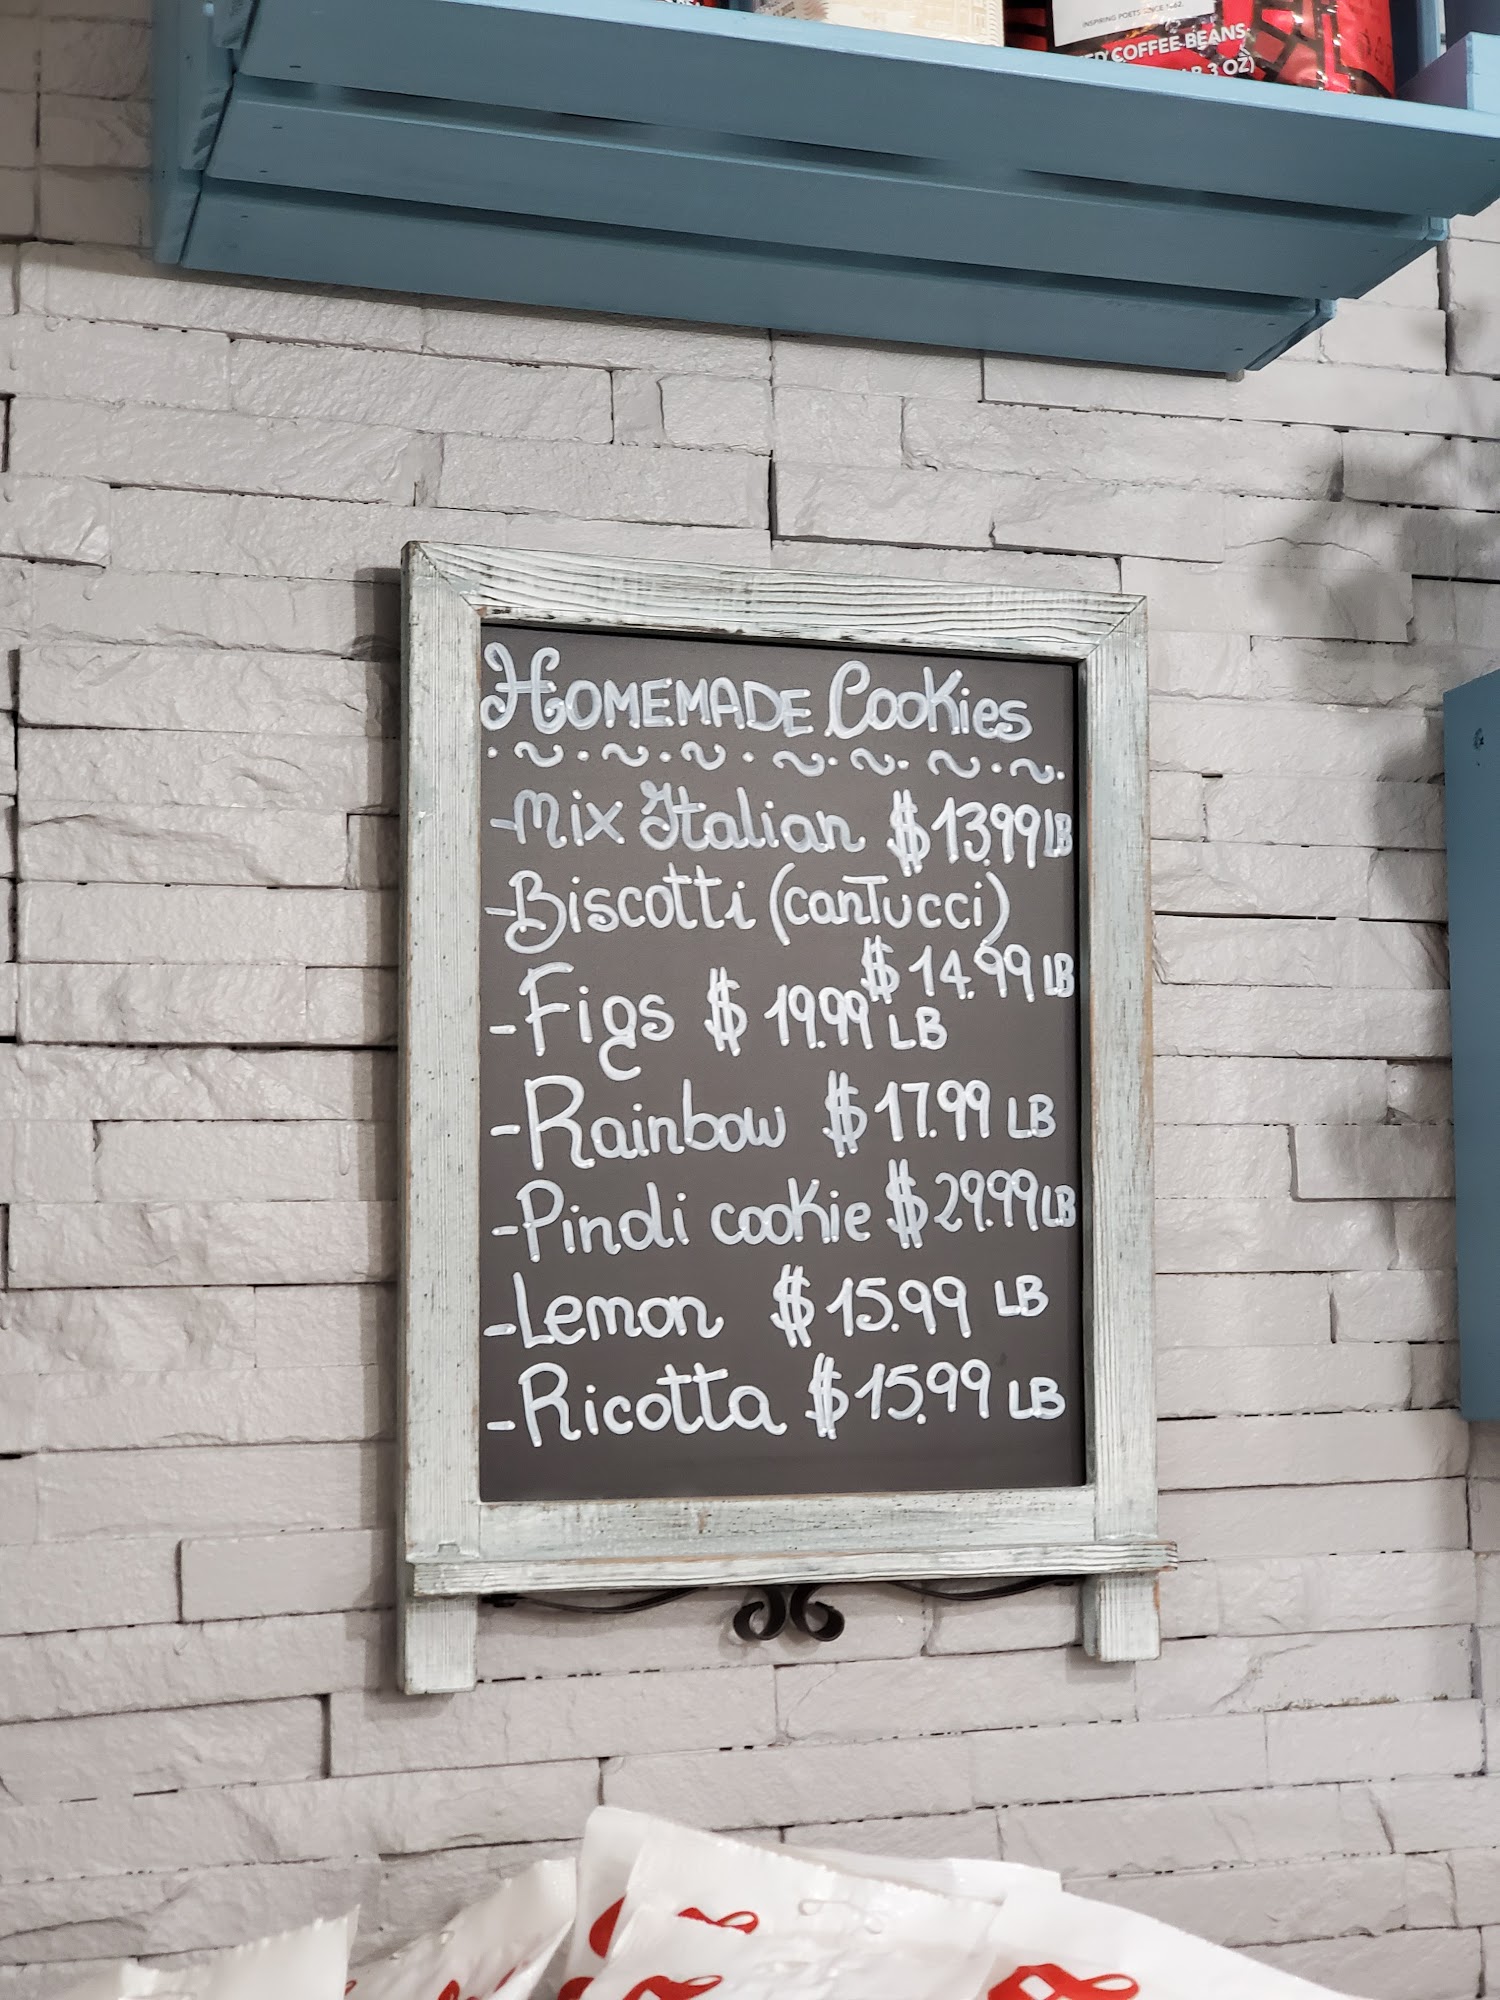 INSPIRING POETS SINCE 1662.
COFFEE BEANS
3 OZ)
HOMEMADE Cookies
-Mix Italian $13.99 LB
-Biscotti (cantucci)
$14.99 LB
-Figs $19.99 LB
-Rainbow $17.99 LB
-Pinoli cookie $29.99 LB
-Lemon $15.99 LB
-Ricotta $15.99 LB